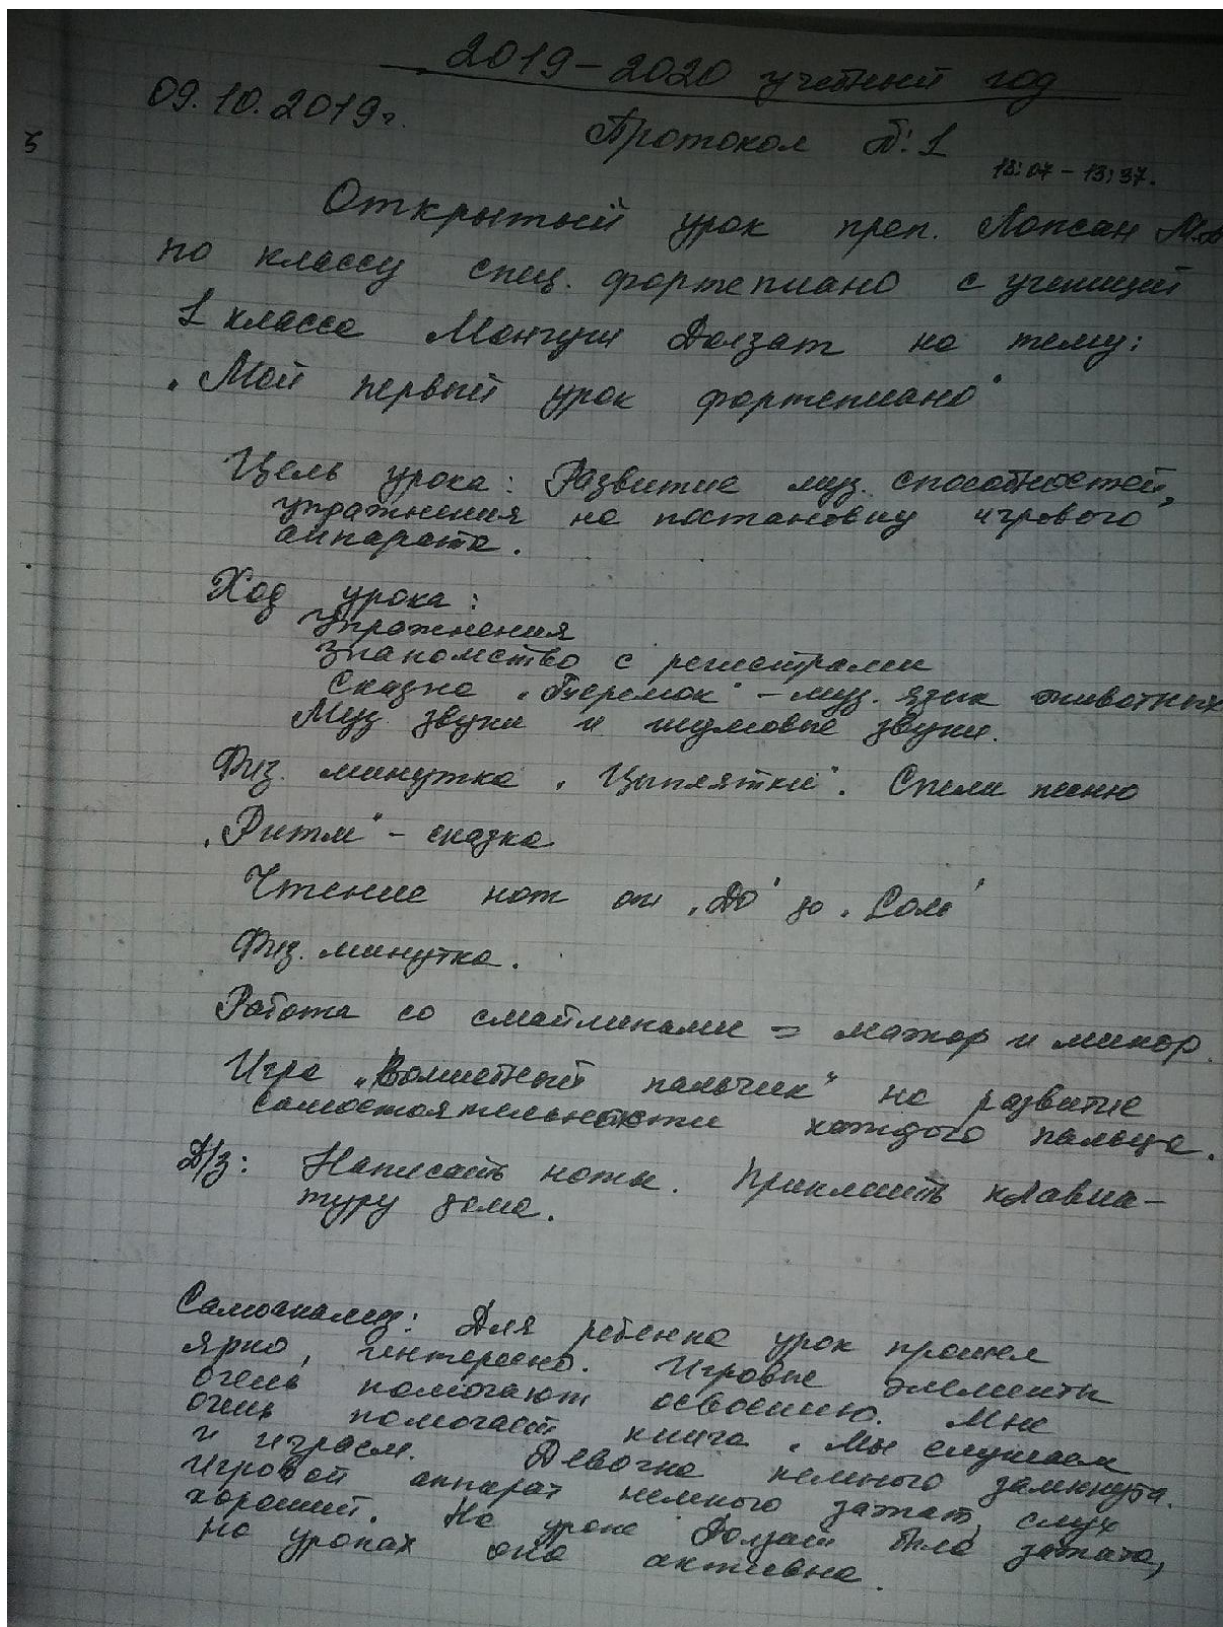 2019-2020 учебный год
09.10.2019г.
Протокол №1
13:07 - 13:37.
Открытый урок преп. Лопсан
по классу спец. фортепиано с ученицей
1 класса Монгуш Долзат на тему:
„Мой первый урок фортепиано"
Цель урока: Развитие муз. способностей,
упражнения на постановку игрового
аппарата.
Ход урока:
Упражнения
Знакомство с регистрами
Сказка „Теремок" - муз. язык животных
Муз. звуки и шумовые звуки.
Физ. минутка „Цыплятки". Спели песню
„Ритм" - сказка
Чтение нот от „До" до „Соль"
Физ. минутка.
Работа со смайликами = мажор и минор.
Игра „Волшебный пальчик" на развитие
самостоятельности каждого пальца.
Д/з: Написать ноты. Приклеить клавиа-
туру дома.
Самоанализ: Для ребенка урок прошел
ярко, интересно. Игровые элементы
очень помогают освоению. Мне
очень помогает книга „Мы слушаем
и играем. Девочка немного замкнута.
Игровой аппарат немного зажат, слух
хороший. На уроке Долзат была зажата,
на уроках она активна.